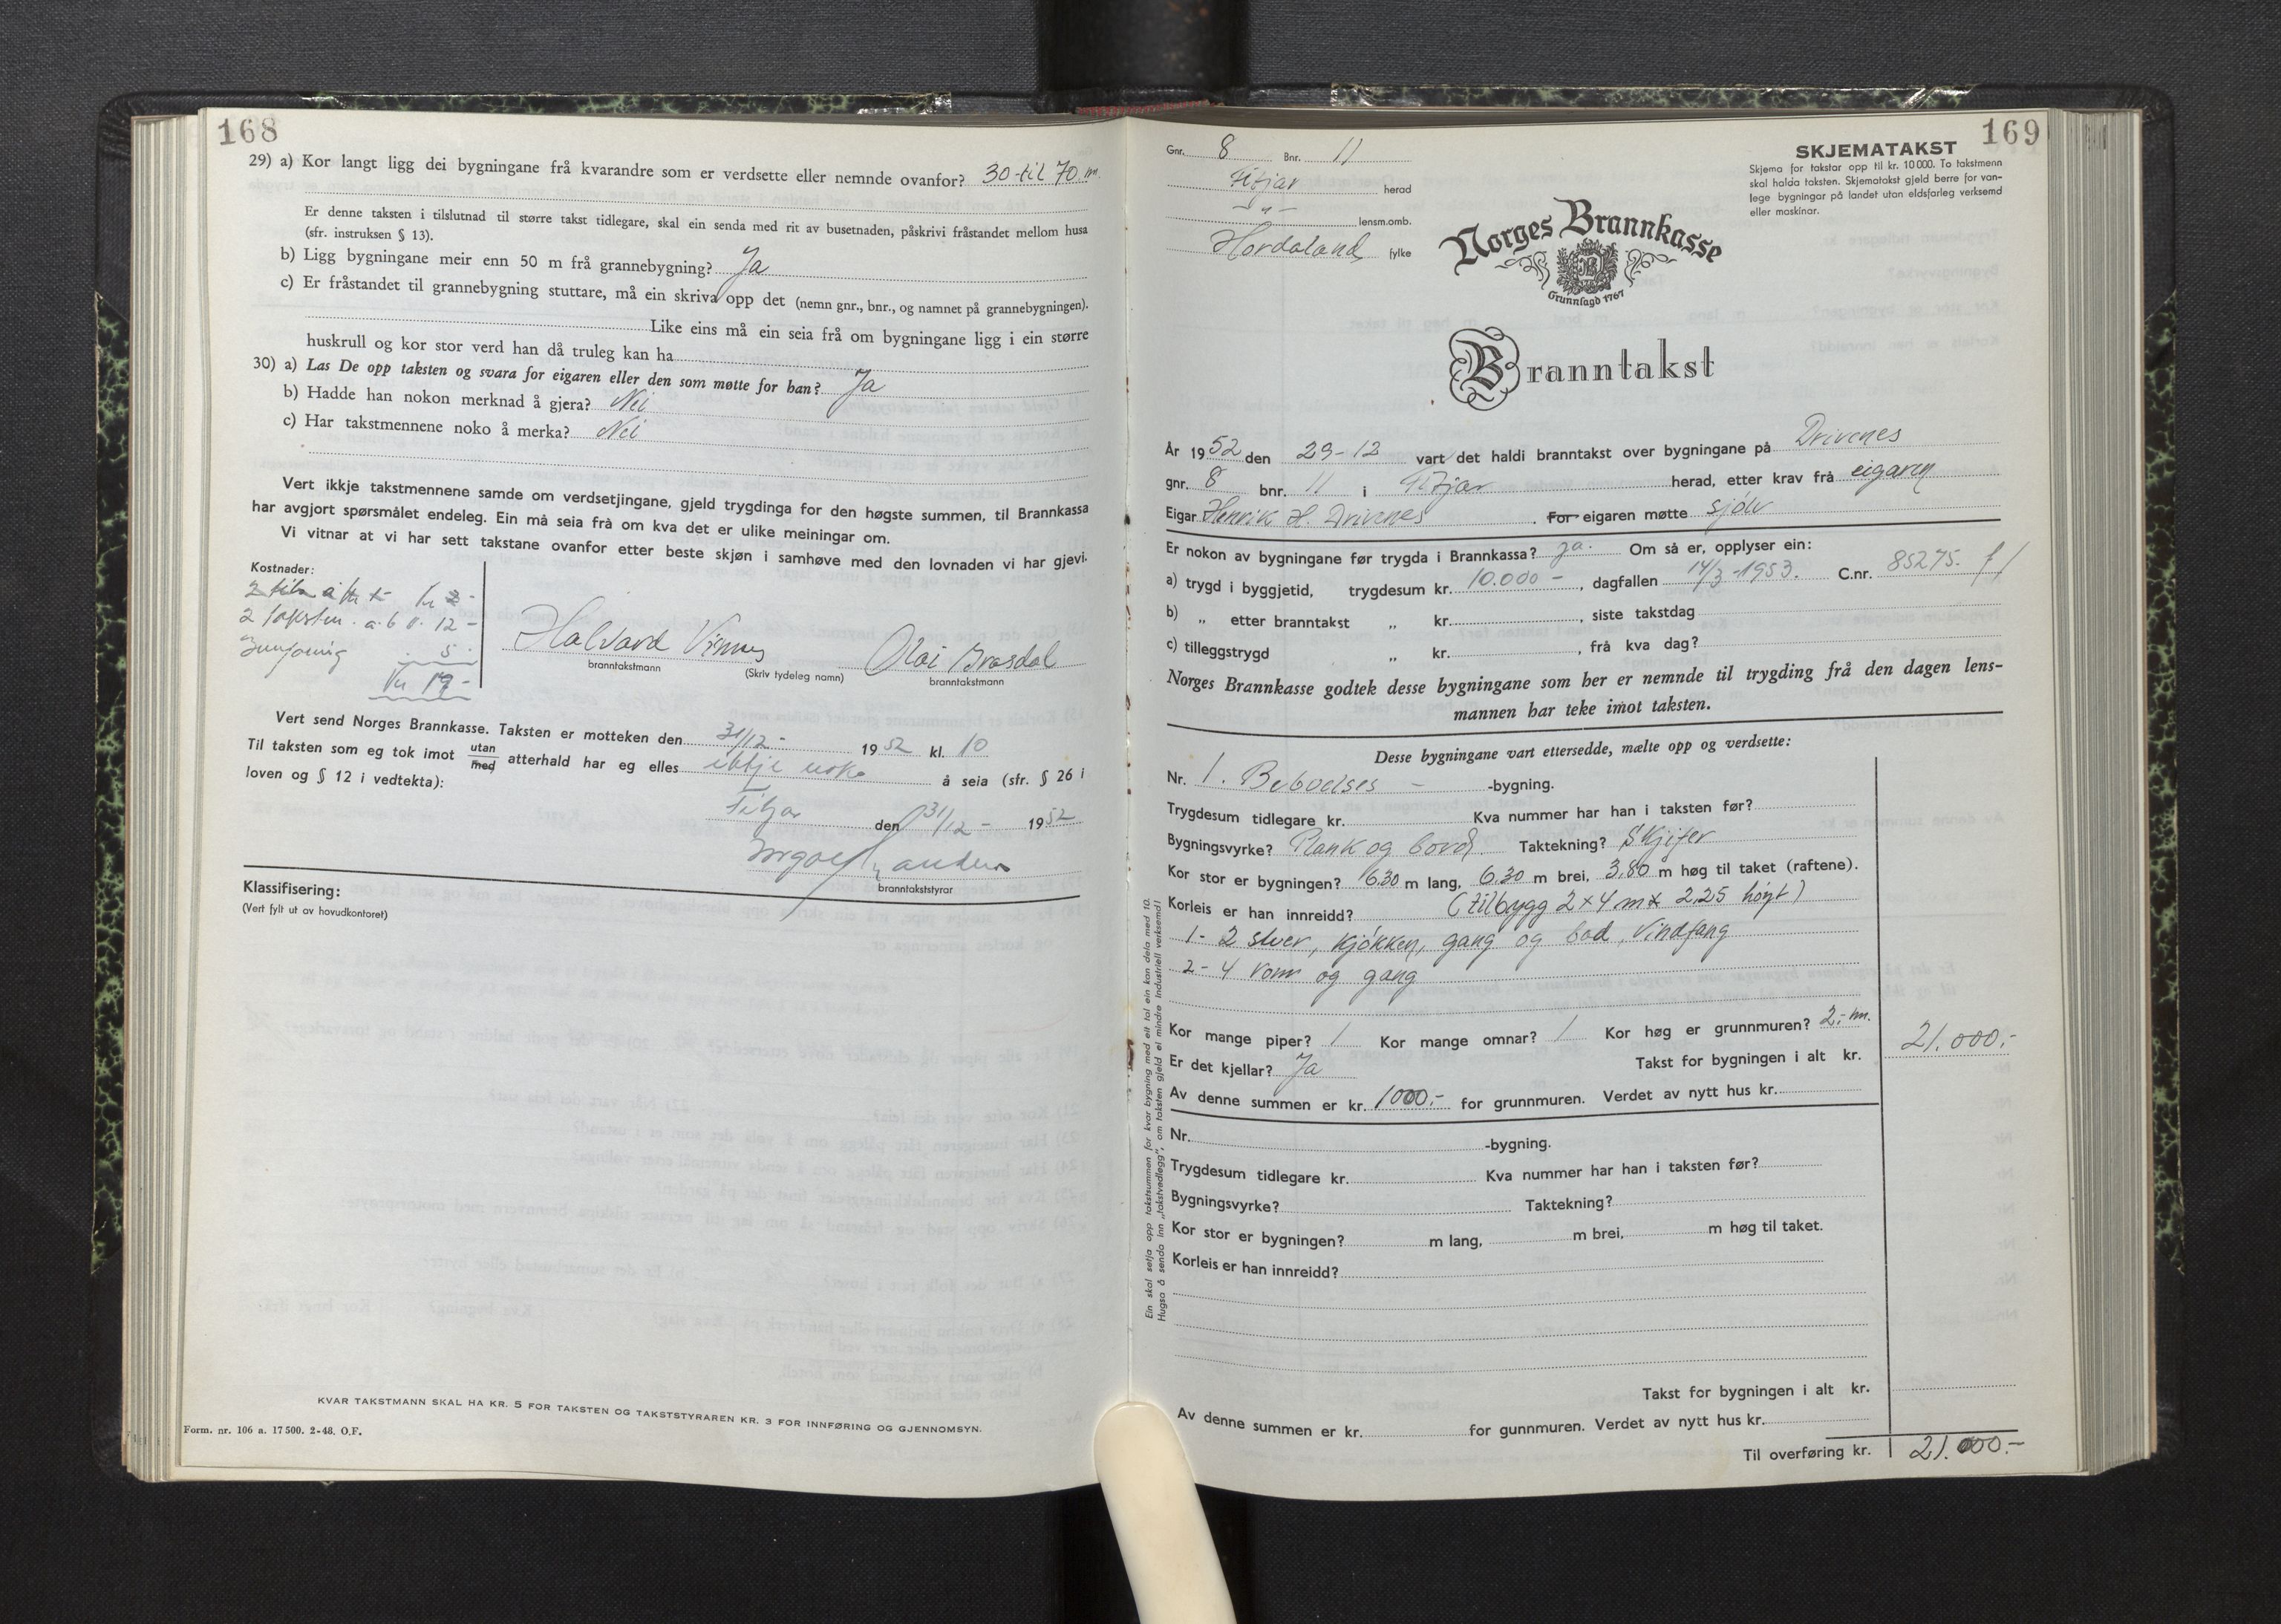 168
29) a) Kor langt ligg dei bygningane frå kvarandre som er verdsette eller nemnde ovanfor? 30-til 70 m.
Er denne taksten i tilslutnad til større takst tidlegare, skal ein senda med rit av busetnaden, påskrivi fråstandet mellom husa
(sfr. instruksen § 13).
b) Ligg bygningane meir enn 50 m frå grannebygning? Ja
c) Er fråstandet til grannebygning stuttare, må ein skriva opp det (nemn gnr., bnr., og namnet på grannebygningen).
Like eins må ein seia frå om bygningane ligg i ein større
huskrull og kor stor verd han då truleg kan ha
30) a) Las De opp taksten og svara for eigaren eller den som møtte for han? Ja
b) Hadde han nokon merknad å gjera? Nei
c) Har takstmennene noko å merka? Nei
Vert ikkje takstmennene samde om verdsetjingane, gjeld trygdinga for den høgste summen, til Brannkassa
har avgjort spørsmålet endeleg. Ein må seia frå om kva det er ulike meiningar om.
Vi vitnar at vi har sett takstane ovanfor etter beste skjøn i samhøve med den lovnaden vi har gjevi.
Kostnader:
2 takstm. a. 6 kr. 12 -
5 -
Kr 19 -
Halvard
branntakstmann
(Skriv tydeleg namn)
Olai
branntakstmann
Vert send Norges Brannkasse. Taksten er motteken den 31/12 - 1952 kl. 10
Til taksten som eg tok imot utan med atterhald har eg elles ikkje noko å seia (sfr. § 26 i
loven og § 12 i vedtekta):
Fitjar den 31/12 - 1952
branntakststyrar
Klassifisering:
(Vert fylt ut av hovudkontoret)
KVAR TAKSTMANN SKAL HA KR. 5 FOR TAKSTEN OG TAKSTSTYRAREN KR. 3 FOR INNFØRING OG GJENNOMSYN.
Form. nr. 106 a. 17 500. 2-48. O.F.
169
Gnr. 8 Bnr. 11
Fitjar herad
-"- lensm.omb.
Hordaland fylke
SKJEMATAKST
Skjema for takstar opp til kr. 10 000. To takstmenn
skal halda taksten. Skjematakst gjeld berre for van-
lege bygningar på landet utan eldsfarleg verksemd
eller maskinar.
Norges Brannkasse
Grunnlagd 1767
Branntakst
År 1952 den 29-12 vart det haldi branntakst over bygningane på Drivenes
gnr. 8 bnr. 11 i Fitjar herad, etter krav frå eigaren
Eigar Henrik H. Drivenes . For eigaren møtte sjølv
Er nokon av bygningane før trygda i Brannkassa? Ja. Om så er, opplyser ein:
a) trygd i byggjetid, trygdesum kr. 10.000 - , dagfallen 14/3 -1953. C.nr. 85275. f/
b) „ etter branntakst „ kr. , siste takstdag
c) tilleggstrygd „ kr. , frå kva dag?
Norges Brannkasse godtek desse bygningane som her er nemnde til trygding frå den dagen lens-
mannen har teke imot taksten.
Desse bygningane vart ettersedde, mælte opp og verdsette:
Nr. 1. Beboelses - -bygning.
Trygdesum tidlegare kr. Kva nummer har han i taksten før?
Bygningsvyrke? Plank og bord. Taktekning? Skjifer
Kor stor er bygningen? 6.30 m lang, 6.30 m brei, 3.80 m høg til taket (raftene).
Korleis er han innreidd? (tilbygg 2 x 4 m x 2.25 høgt)
1 - 2 stuer, kjøkken, gang og bad, Vindfang
2 - 4 rom og gang
Kor mange piper? 1 Kor mange omnar? 1 Kor høg er grunnmuren? 2,- m.
Er det kjellar? Ja Takst for bygningen i alt kr. 21.000,-
Av denne summen er kr. 1000,- for grunnmuren. Verdet av nytt hus kr.
Nr. -bygning.
Trygdesum tidlegare kr. Kva nummer har han i taksten før?
Bygningsvyrke? Taktekning?
Kor stor er bygningen? m lang, m brei, m høg til taket.
Korleis er han innreidd?
Takst for bygningen i alt kr.
Av denne summen er kr. for gunnmuren. Verdet av nytt hus kr.
Til overføring kr. 21.000.-
Ein skal setja opp takstsummen for kvar bygning med eit tal ein kan dela med 10.
Hugsa å senda inn „takstvedlegg", om taksten gjeld ei mindre industriell verksemd!